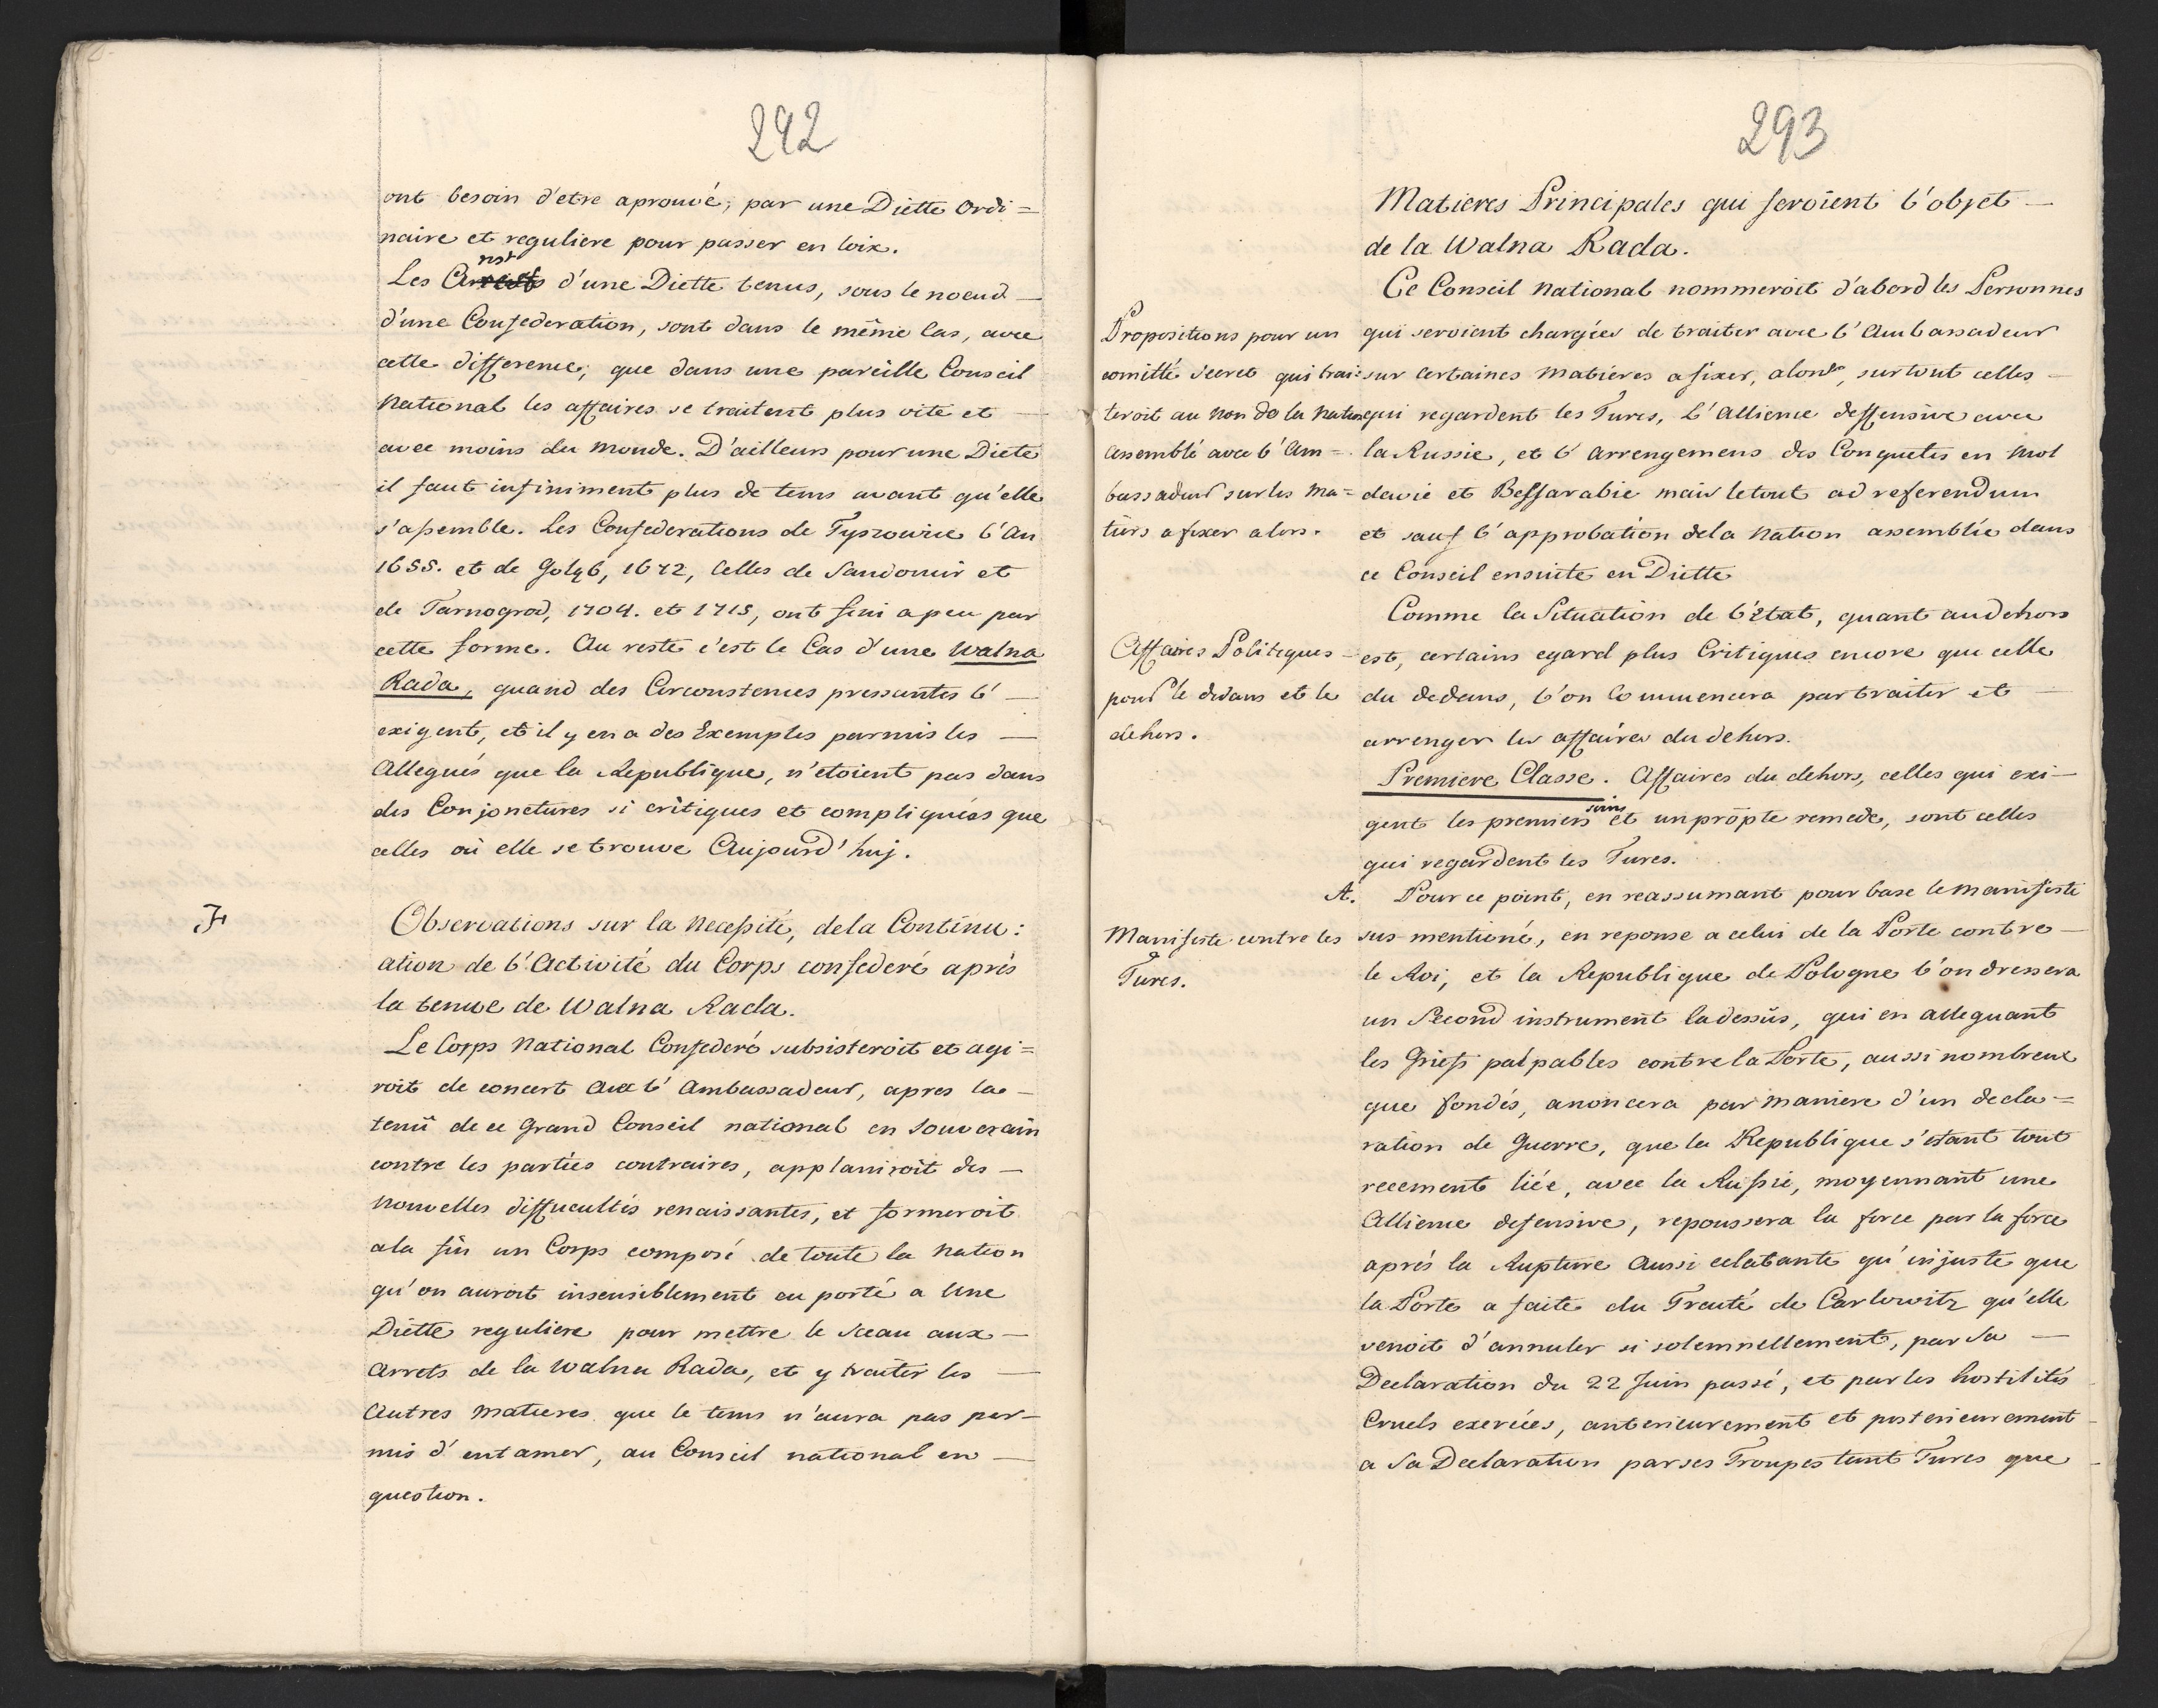 292
ont besoin d'etre aprouvé, par une Diette Ordi=
naire et reguliere pour passer en loix.
Les d'une Diette tenus, sous le noeud —
d'une Confederation, sont dans le même Cas, avec
cette difference, que dans une pareille Conseil
National les affaires se traitent plus vite et —
avec moins du monde. D'ailleurs pour une Diete
il faut infiniment plus de tems avant qu'elle
s'assemble. Les Confederations de Tyszowice l'An
1655. et de Goląb, 1672, Celles de Sandomir et
de Tarnogrod, 1704. et 1715, ont fini a peu par
cette forme. Au reste c'est le Cas d'une Walna
Rada, quand des Circonstences pressantes l' —
exigent, et il y en a des Exemples parmis les —
Allegués que la Republique, n'etoient pas dans
des Conjonctures si critiques et compliquées que
celles où elle se trouve Aujourd'huj.
F
Observations sur la Necessité, dela Continu:
ation de l'Activité du Corps confederé aprés
la tenue de Walna Rada.
Le Corps National Confederé subsisteroit et agi=
roit de concert Avec l'Ambassadeur, apres la —
tenü de ce Grand Conseil national en Souverain
contre les parties contraires, applaniroit des —
Nouvelles diffucultés renaissantes, et formeroit
ala fin un Corps composé de toute la Nation
qu'on auroit insensiblement eu porté a Une
Diette reguliere pour mettre le Sceau aux —
Arrets de la Walna Rada, et y traiter les —
Autres Matieres que le tems n'aura pas per—
mis d'entamer, au Conseil national en —
question.
293
Matieres Principales qui seroient l'objet —
de la Walna Rada.
Ce Conseil National nommeroit d'abord les Personnes
qui seroient chargées de traiter avec l'Ambassadeur
sur certaines Matieres a fixer, alors, surtout celles —
qui regardent les Turcs, L'Allience deffensive avec
la Russie, et l'arrengemens des Conquetes en Mol
davie et Bessarabie mais letout ad referendum
et sauf l'approbation dela Nation assemblée dans
ce Conseil ensuite en Diette
Propositions pour un
comitté Secret qui trai=
teroit au Nom de la Nation
assemblé avec l'Am=
bassadeur sur les Ma=
tiers a fixer alors.
Comme la Situation de l'etat, quant au dehors
est, certains egard plus Critiques encore que celle
du dedans, l'on Commencera par traiter et —
arrenger les affaires du dehors.
Affaires Politiques —
pour le dedans et le
dehors.
Premiere Classe. Affaires du dehors, celles qui exi—
gent les premiers soins et un pröpte remede, sont celles
qui regardent les Turcs.
A. Pour ce point, en reassumant pour base le manifeste
sus mentioné, en reponse a celui de la Porte contre —
le Roi, et la Republique de Pologne l'on dressera
un Second instrument ladessüs, qui en alleguant
les Griefs palpables contre la Porte, aussi nombreux
que fondés, anoncera par maniere d'un decla=
ration de Guerre, que la Republique s'etant tout
recement liée, avec la Russie, moyennant une
Allience defensive, repoussera la force par la force
aprés la Rupture Aussi eclatante qu'injuste que
la Porte a faite du Traité de Carlowitz qu'elle
venoit d'annuler si solemnellement, par Sa —
Declaration du 22 Juin passé, et par les hostilités
Cruels exercées, anterieurement et posterieurement
a Sa Declaration par ses Troupes tant Turcs que
Manifeste contre les
Turcs.